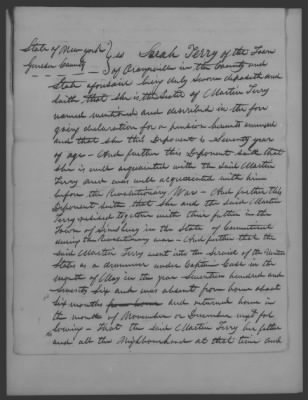 State of New york
Genesee County } ss Sarah Terry of the Town
of Orangeville in the County and
State aforesaid being duly Sworn deposeth and
saith that she is the Sister of Martin Terry
named mentioned and described in the fore
going declaration for a pension hereunto annexed
and that she this Deponent is Seventy years
of age - And further this Deponent saith that
she is well acquainted with the said Martin
Terry and was well acquainted with him
before the Revolutionary War - And further this
Deponent saith that she and the said Martin
Terry resided together with their father in the
Town of Simsbury in the State of Connecticut
during the Revolutionary war - And further that the
said Martin Terry went into the Service of the United
States as a drummer under Captain Case in the
month of May in the year Seventeen hundred and
Seventy Six and was absent from home about
six months and returned home in
the month of November or December next fol
lowing - That the said Martin Terry his father
and all the Neighbourhood at that time and